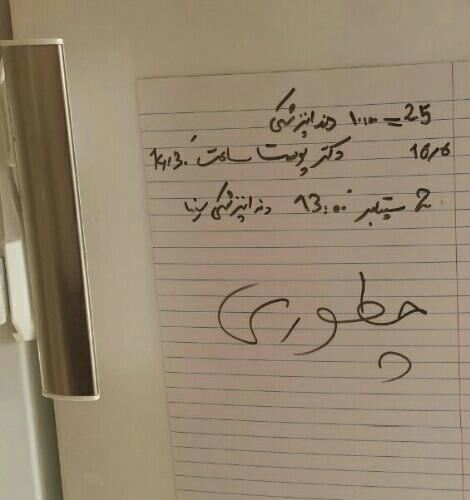 25 = ۱۰:۰۰ دندانپزشکی
16/6 دکتر پوست ساعت 14:30
2 سپتامبر 13:00 دندانپزشکی
چطوری